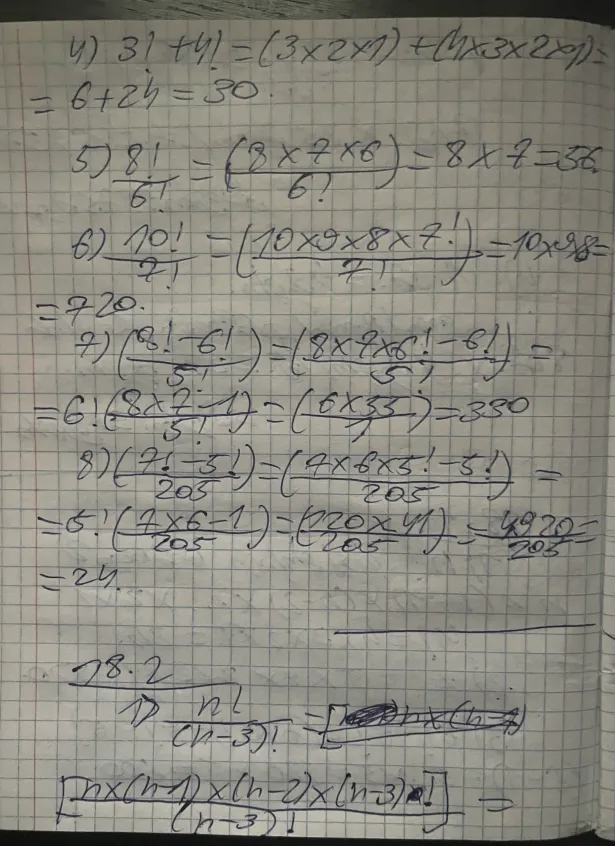 4) 3! + 4! = (3×2×1) + (4×3×2×1) =
= 6 + 24 = 30.
5) 8!/6! = (8×7×6/6!) = 8×7 = 56.
6) 10!/7! = (10×9×8×7!/7!) = 10×9×8 =
= 720.
7) (8!-6!/5!) = (8×7×6!-6!/5!) =
= 6!(8×7-1/5!) = (6×55/1) = 330
8) (7!-5!/205) = (7×6×5!-5!/205) =
= 5!(7×6-1/205) = (120×41/205) = 4920/205 =
= 24.
18.2
1) n!/(n-3)! = [n×(n-1)
[n×(n-1)×(n-2)×(n-3)!]/(n-3)! =